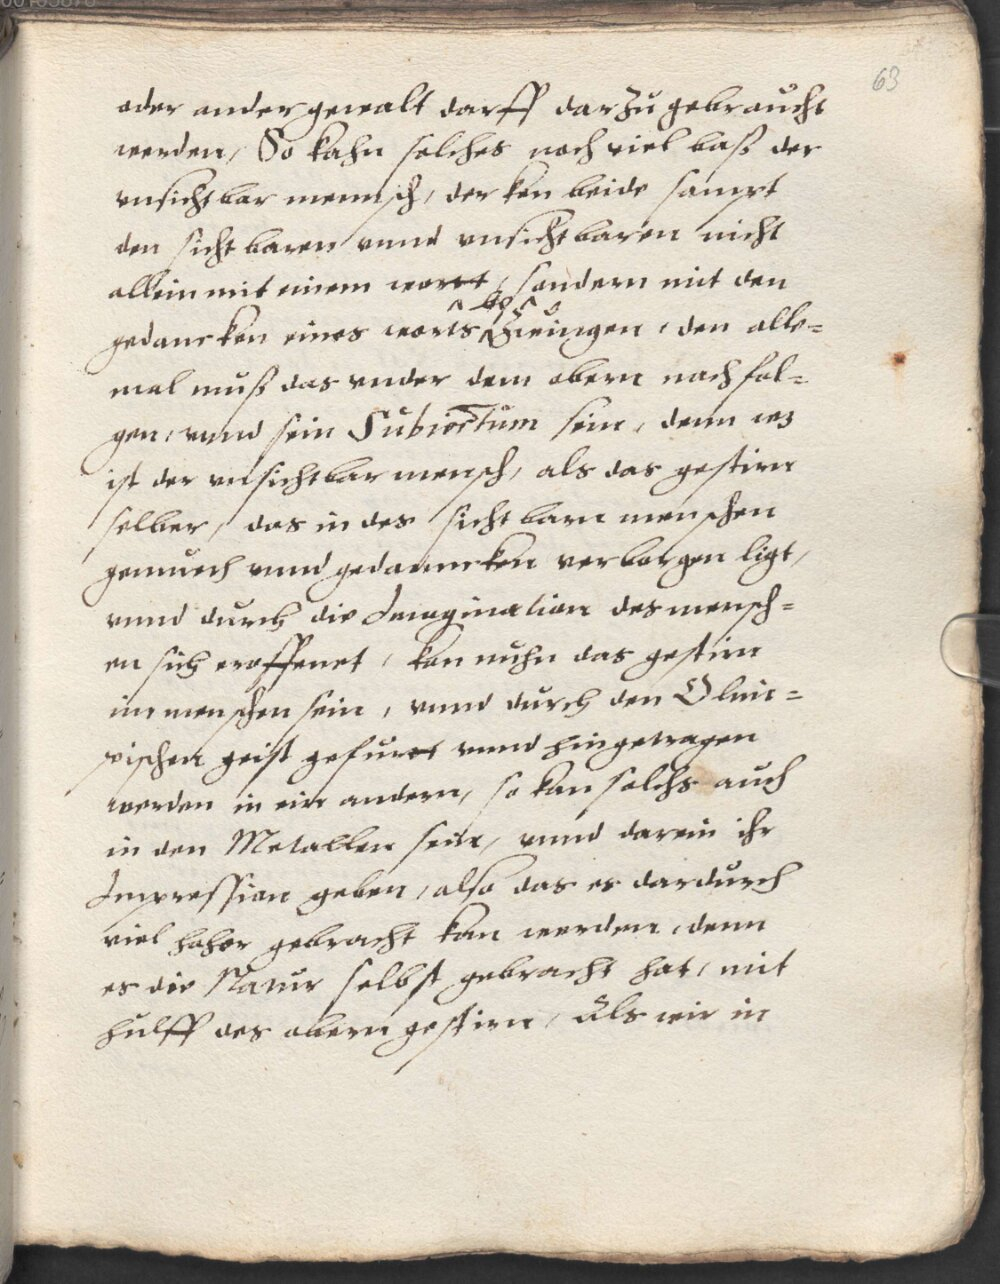 63
oder ander gewalt darff darzu gebraucht
werden, So kahn solches noch viel baß der
vnsichtbar mennsch, der ken beide sampt
den sichtbaren vnnd vnsichtbaren nicht
allein mit einem wortt, sondern mit den
gedancken eines worts Zwingen, den alle=
mal muß das vnder dem obern nach fol=
gen, vnnd sein Subiectum sein, denn es
ist der vnsichtbar mensch, als das gestirn
selber, das in des sichtbarn menschen
gemuech vnnd gedanncken verborgen ligt,
vnnd durch die Imagination des mensch=
en sich eroffenet, kan nuhn das gestirn
im menschen sein, vnnd durch den Olim=
pischen geist gefurtt vnnd hingetragen
werden in ein andern, so kan solchs auch
in den Metallen sein, vnnd darein ihr
Impression geben, also das es dardurch
viel hoher gebracht kan werden, denn
es die Natur selbst gebracht hat, mit
hulff des obern gestirn, Als wir in